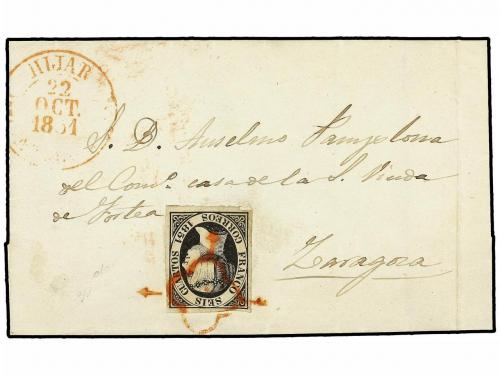 HIJAR
22
OCT.
1851
S. D. Anselmo Pamplona
del Comº. casa de la S. Viuda
de Fortea
Zaragoza
FRANCO SEIS CUARTOS
CORREOS 1851